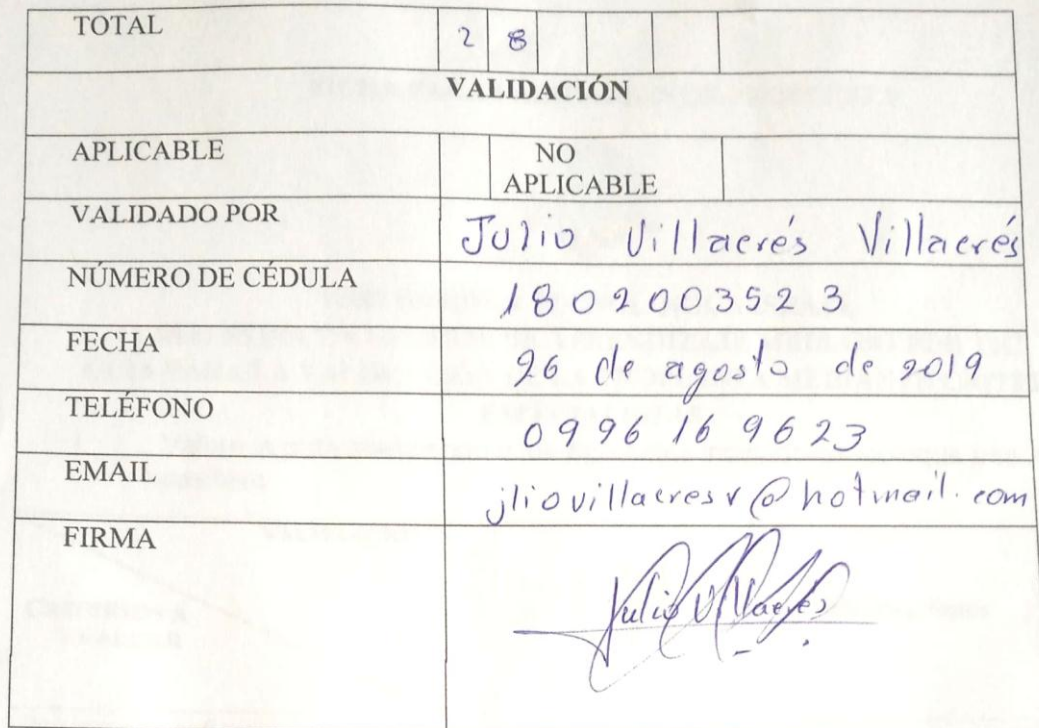 TOTAL 2 8
VALIDACIÓN
APLICABLE NO
APLICABLE
VALIDADO POR Julio Villacrés Villacrés
NÚMERO DE CÉDULA 1802003523
FECHA 26 de agosto de 2019
TELÉFONO 0996 16 9623
EMAIL jliovillacresv@hotmail.com
FIRMA Julio Villacrés